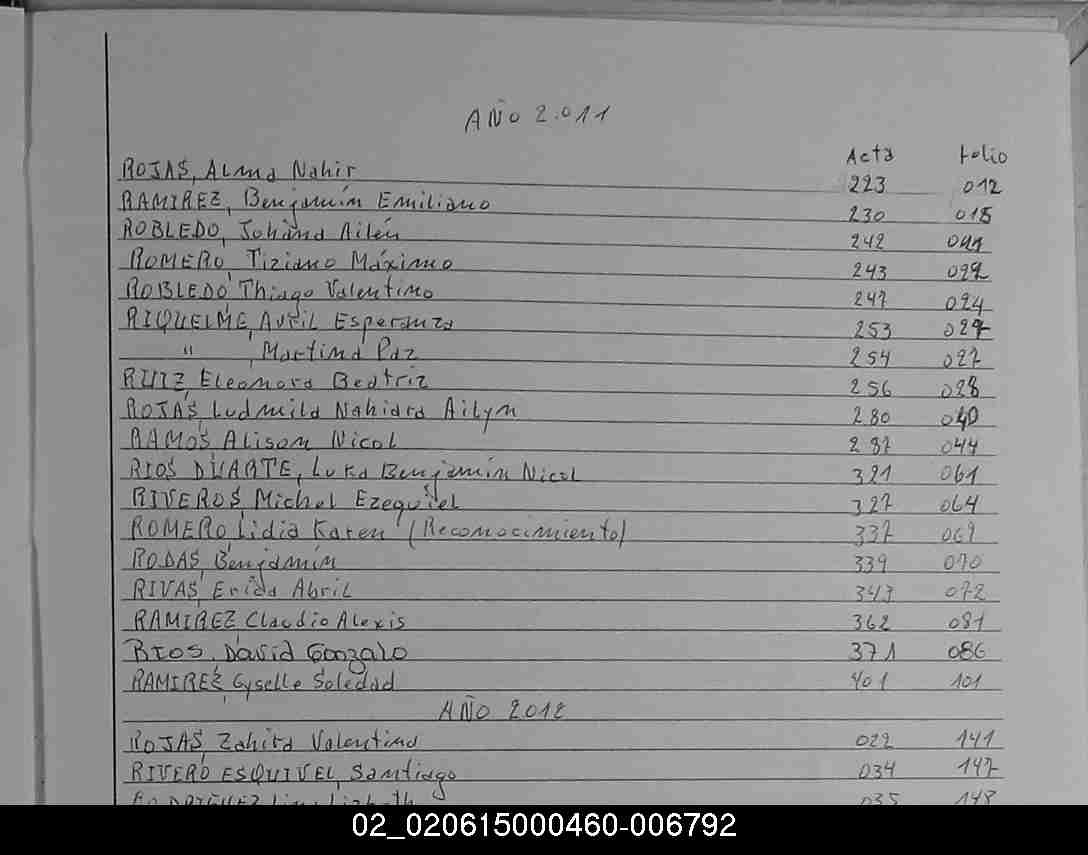 AÑO 2.011
Acta Folio
ROJAS, Alma Nahir 223 012
RAMIREZ, Benjamín Emiliano 230 015
ROBLEDO, Johana Ailén 242
ROMERO, Tiziano Máximo 243 022
ROBLEDO, Thiago Valentino 247 024
RIQUELME, Avril Esperanza 253 027
" , Martina Paz 254 027
RUIZ, Eleonora Beatriz 256 028
ROJAS, Ludmila Nahiara Ailyn 280 040
RAMOS, Alison Nicol 287 044
RIOS DUARTE, Luka Benjamín Nicol 321 061
RIVEROS, Michel Ezequiel 327 064
ROMERO, Lidia Karen (Reconocimiento) 337 069
RODAS, Benjamín 339 070
RIVAS, Abril 343 072
RAMIREZ, Claudio Alexis 362 081
RIOS, David Gonzalo 371 086
RAMIREZ, Gyselle Soledad 401 101
AÑO 2012
ROJAS, Zahira Valentina 022 141
RIVERO ESQUIVEL, Santiago 034 147
035 148
02_020615000460-006792